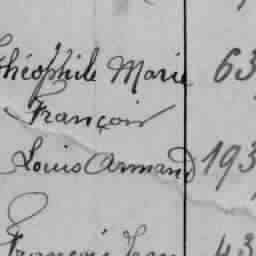 Théophile Marie 63
François
Louis Armand 193
François Jean 43